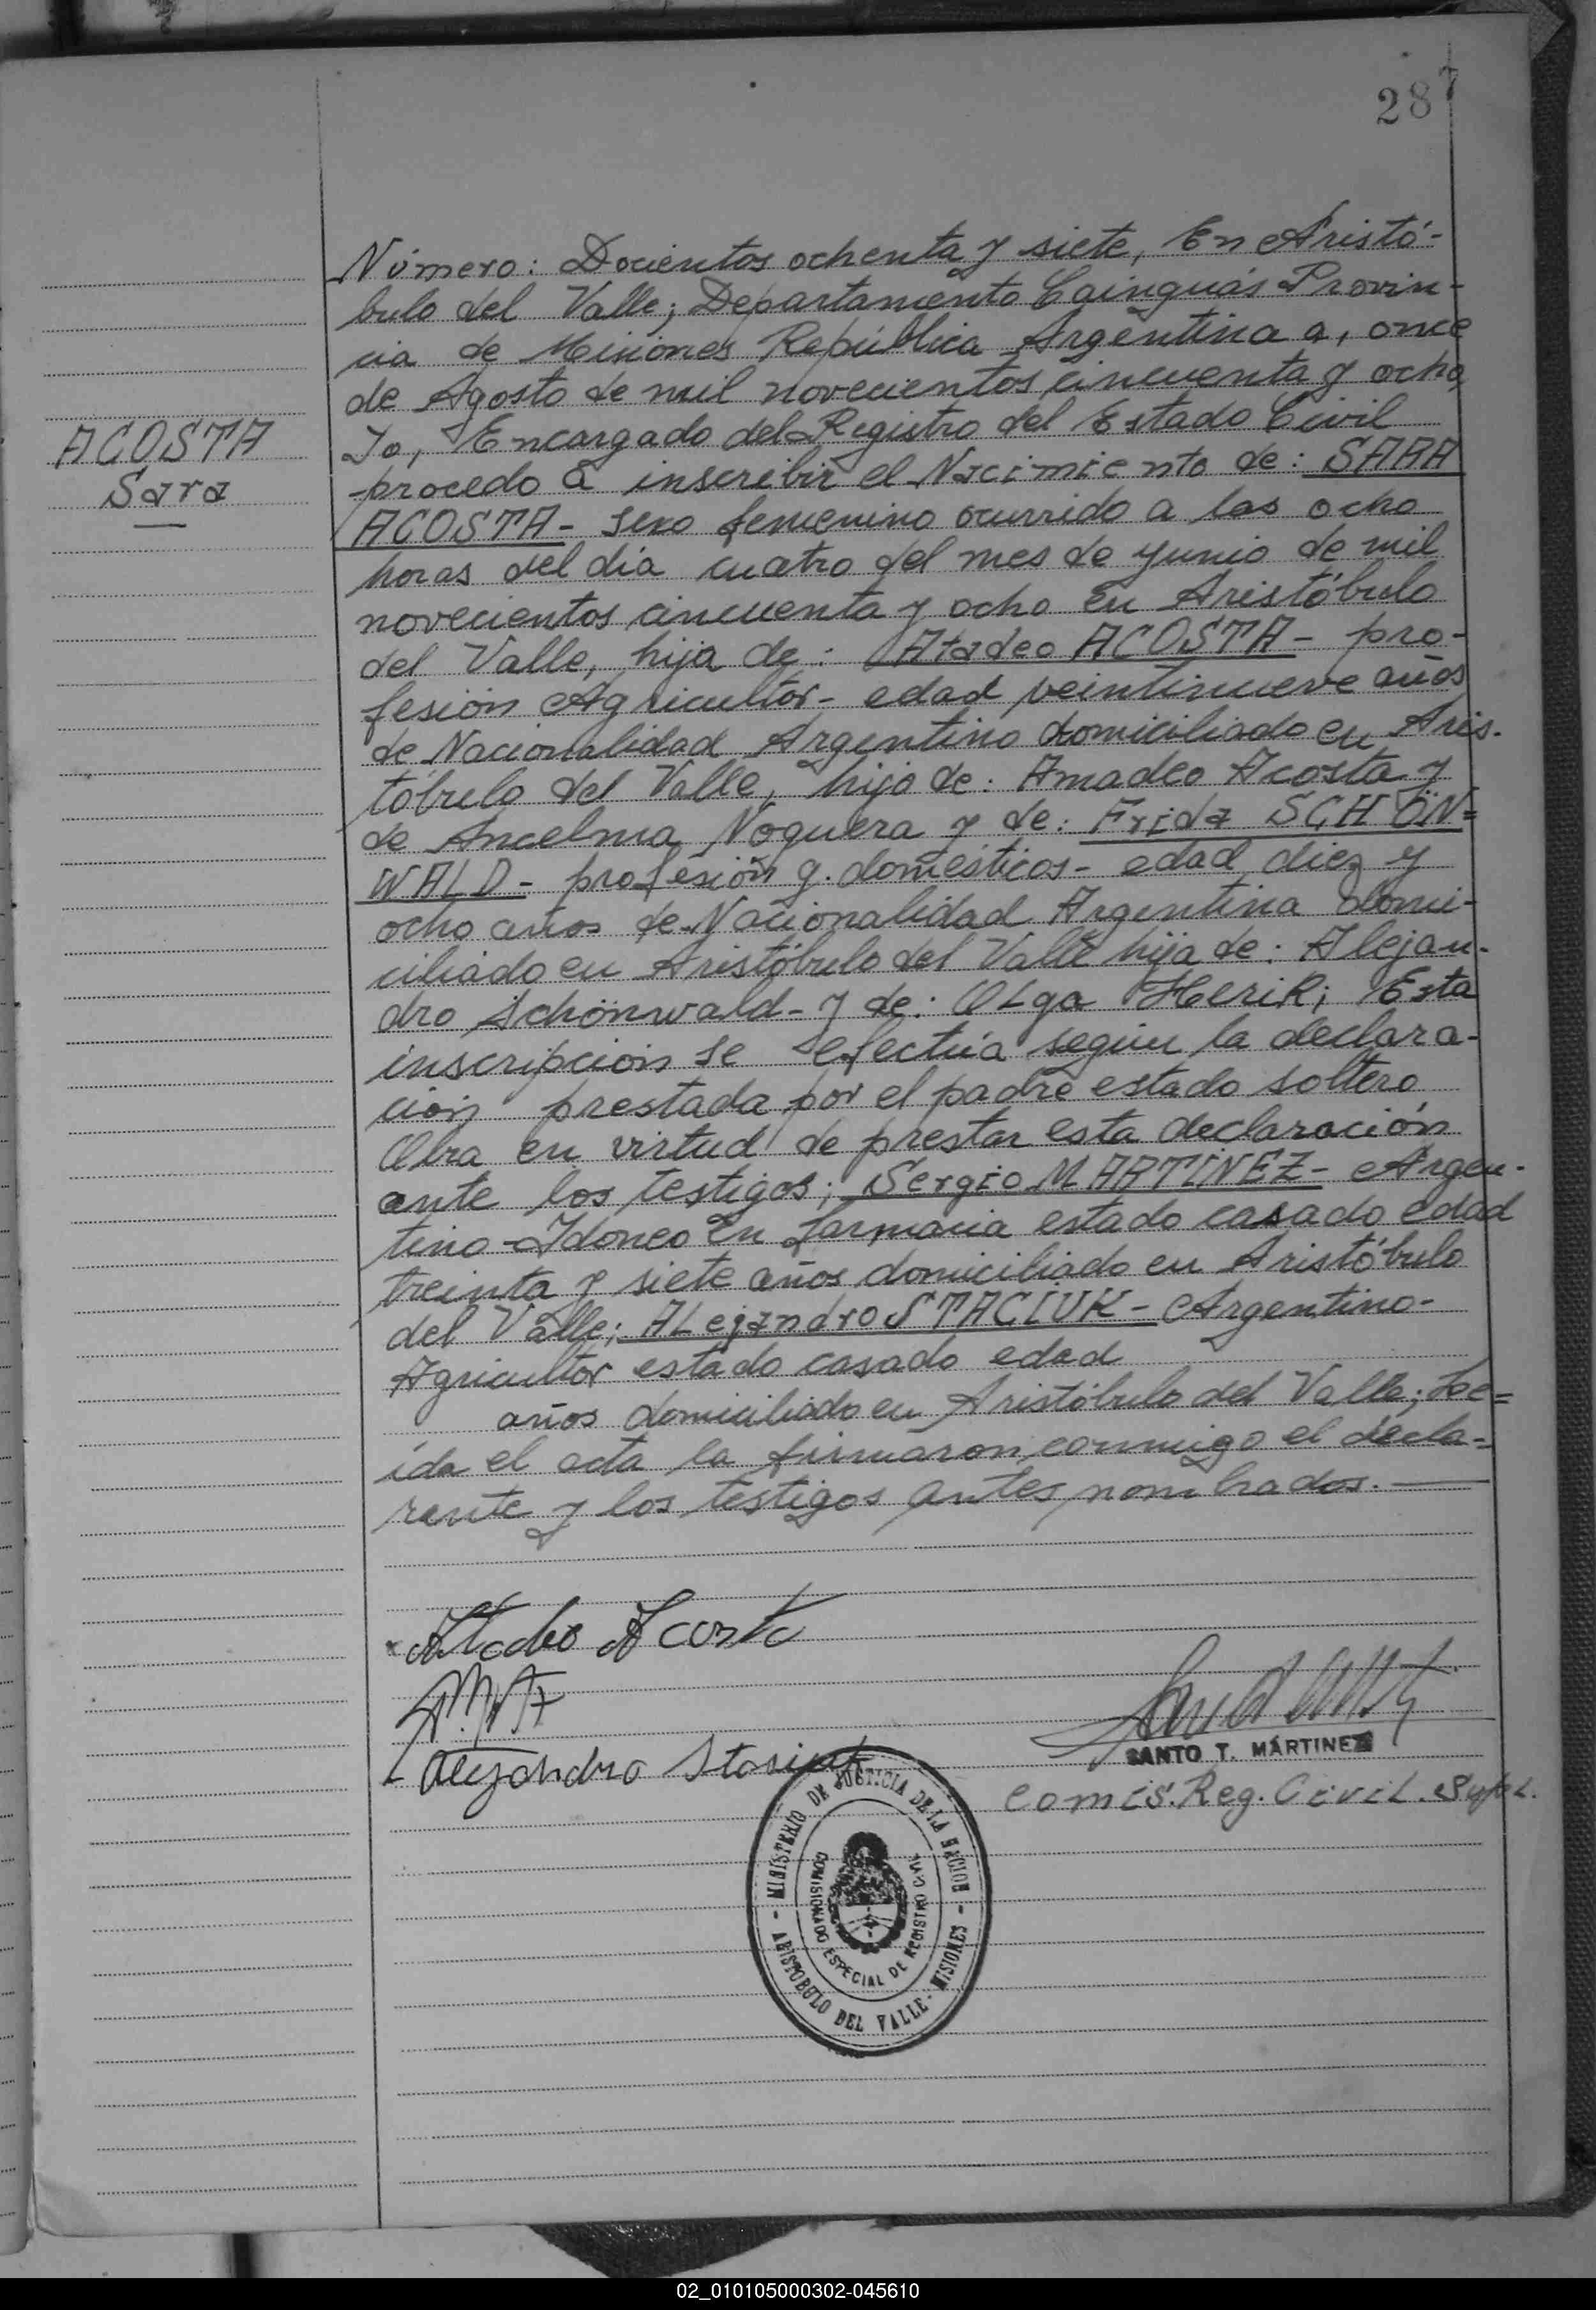 287
Número: Docientos ochenta y siete, En Aristó-
bulo del Valle; Departamento Cainguás Provin-
cia de Misiones República Argentina a, once
de Agosto de mil novecientos cincuenta y ocho,
Yo, Encargado del Registro del Estado Civil
ACOSTA
Sara
procedo a inscribir el Nacimiento de: SARA
ACOSTA- sexo femenino ocurrido a las ocho
horas del día cuatro del mes de yunio de mil
novecientos cincuenta y ocho en Aristóbulo
del Valle, hija de: Atadeo ACOSTA- pro-
fesión Agricultor- edad veintinueve años
de Nacionalidad Argentino domiciliado en Aris-
tóbulo del Valle, hijo de: Amadeo Acosta y
de Ancelma Noguera y de: Frida SCHÖN=
WALD- profesión q. domésticos- edad diez y
ocho años de Nacionalidad Argentina domi-
ciliado en Aristóbulo del Valle hija de: Alejan-
dro Schönwald- y de: Olga Herik; Esta
inscripción se efectúa según la declara-
ción prestada por el padre estado soltero
Obra en virtud de prestar esta declaración
ante los testigos; Sergio MARTINEZ- Argen-
tino-Idoneo en farmacia estado casado edad
treinta y siete años domiciliado en Aristóbulo
del Valle; ALejandro STACIUK- Argentino-
Agricultor estado casado edad
años domiciliado en Aristóbulo del Valle; Le=
ída el acta la firmaron conmigo el decla=
rante y los testigos antes nombrados.
Atadeo Acosta
Alejandro Stasiuk
SANTO T. MARTINEZ
Comis. Reg. Civil. Supl.
- MINISTERIO DE JUSTICIA DE LA NACION -
COMISIONADO ESPECIAL DE REGISTRO CIVIL
ARISTOBULO DEL VALLE - MISIONES
02_010105000302-045610